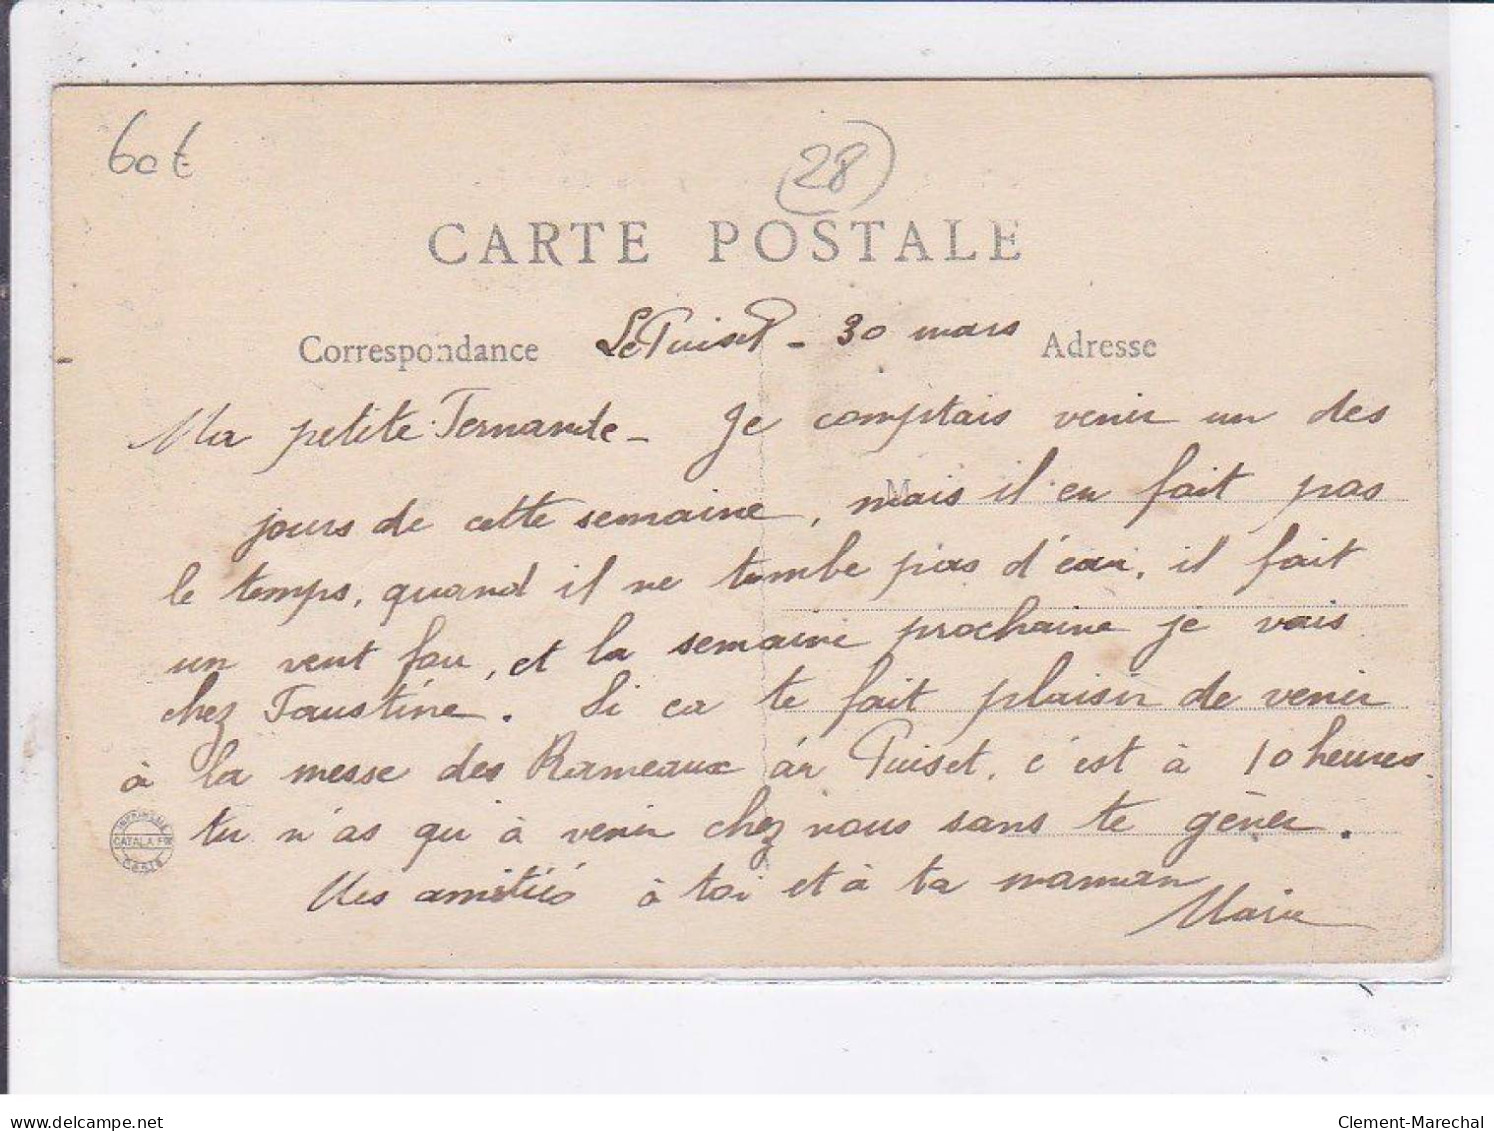 60€
28
CARTE POSTALE
Correspondance Le Puiset - 30 mars Adresse
Ma petite Fernande - Je comptais venir un des
M
jours de cette semaine, mais il en fait pas
le temps, quand il ne tombe pas d'eau, il fait
un vent fou, et la semaine prochaine je vais
chez Faustine. Si ca te fait plaisir de venir
à la messe des Rameaux au Puiset, c'est à 10 heures.
tu n'as qu'à venir chez nous sans te gêner.
Mes amitiés à toi et à ta maman
Marie
IMPRIMERIE
CATALA FRES
PARIS
delcampe.net
Clement-Marechal